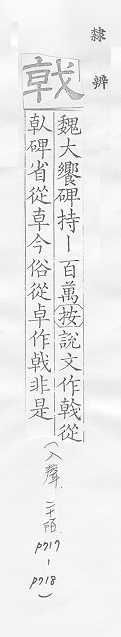 隸辨
戟
魏大饗碑持丨百萬按説文作𢧢從
倝碑省從𠦝今俗從卓作戟非是
(入聲.二十陌.P717-P718)